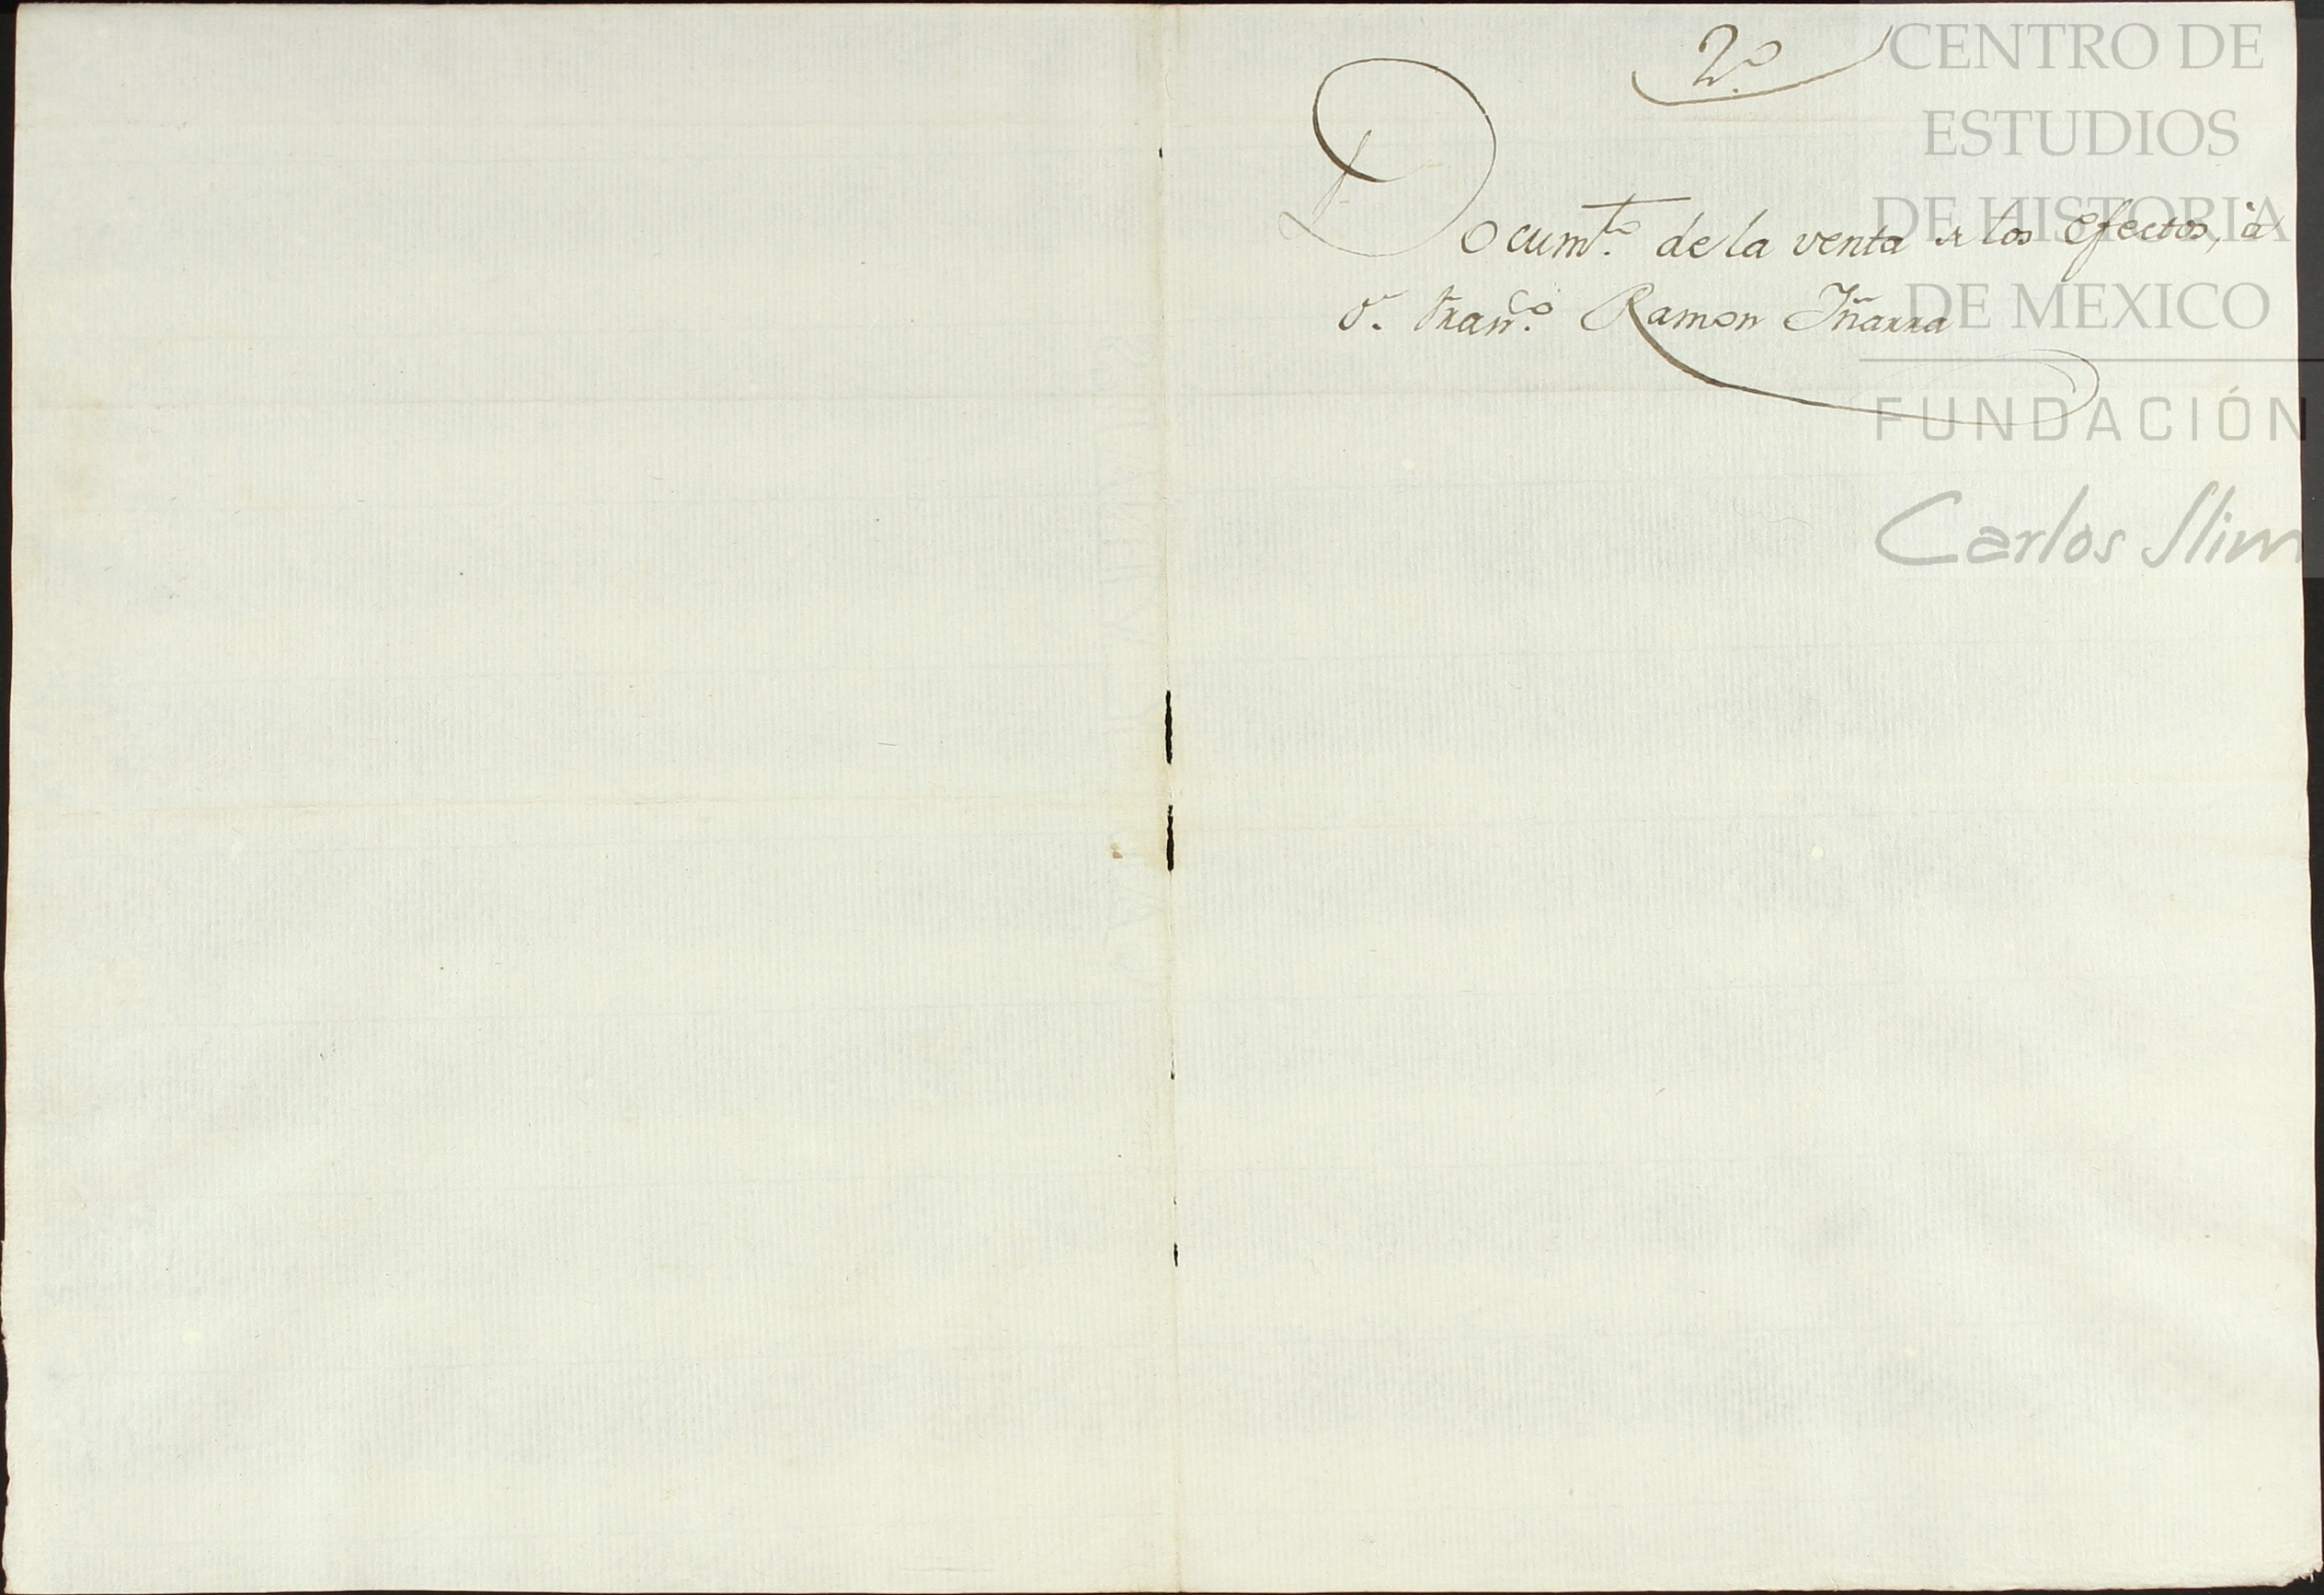 2º
Documto. de la venta de los Efectos, à
Dn. Franco. Ramon Yñarra
CENTRO DE
ESTUDIOS
DE HISTORIA
DE MEXICO
FUNDACIÓN
Carlos Slim